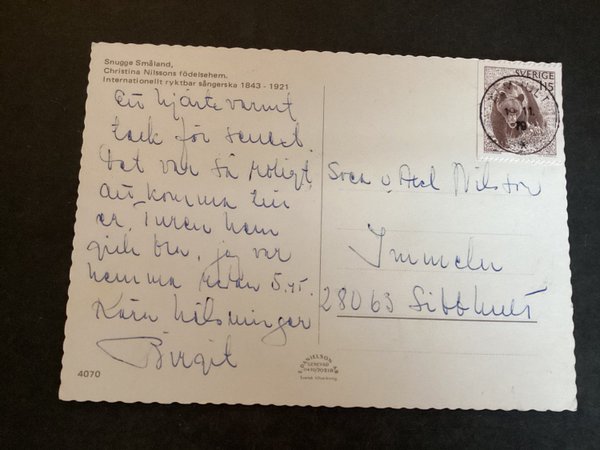 Snugge Småland,
Christina Nilssons födelsehem.
Internationellt ryktbar sångerska 1843 - 1921
Ett hjärte varmt
tack för senast.
Det var så roligt
att komma till
er. Turen hem
gick bra, jag var
hemma redan 5.45.
Kära hälsningar
Birgit
4070
SVERIGE
115
11.
Sven o. Axel Nilsson
Immeln
28063 Sibbhult
DANIELSON
Svensk tillverkning